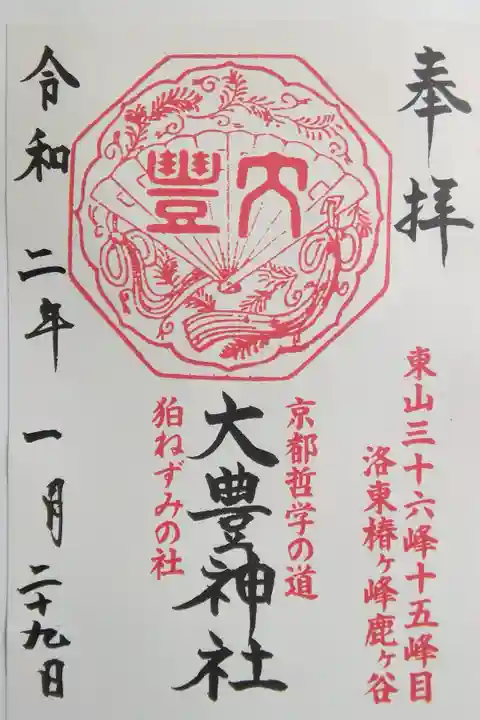 奉拝
東山三十六峰十五峰目
洛東椿ヶ峰鹿ヶ谷
大豊
京都哲学の道
大豊神社
狛ねずみの社
令和二年一月二十九日